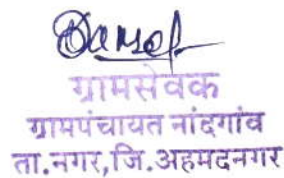 ग्रामसेवक
ग्रामपंचायत नांदगांव
ता.नगर,जि.अहमदनगर